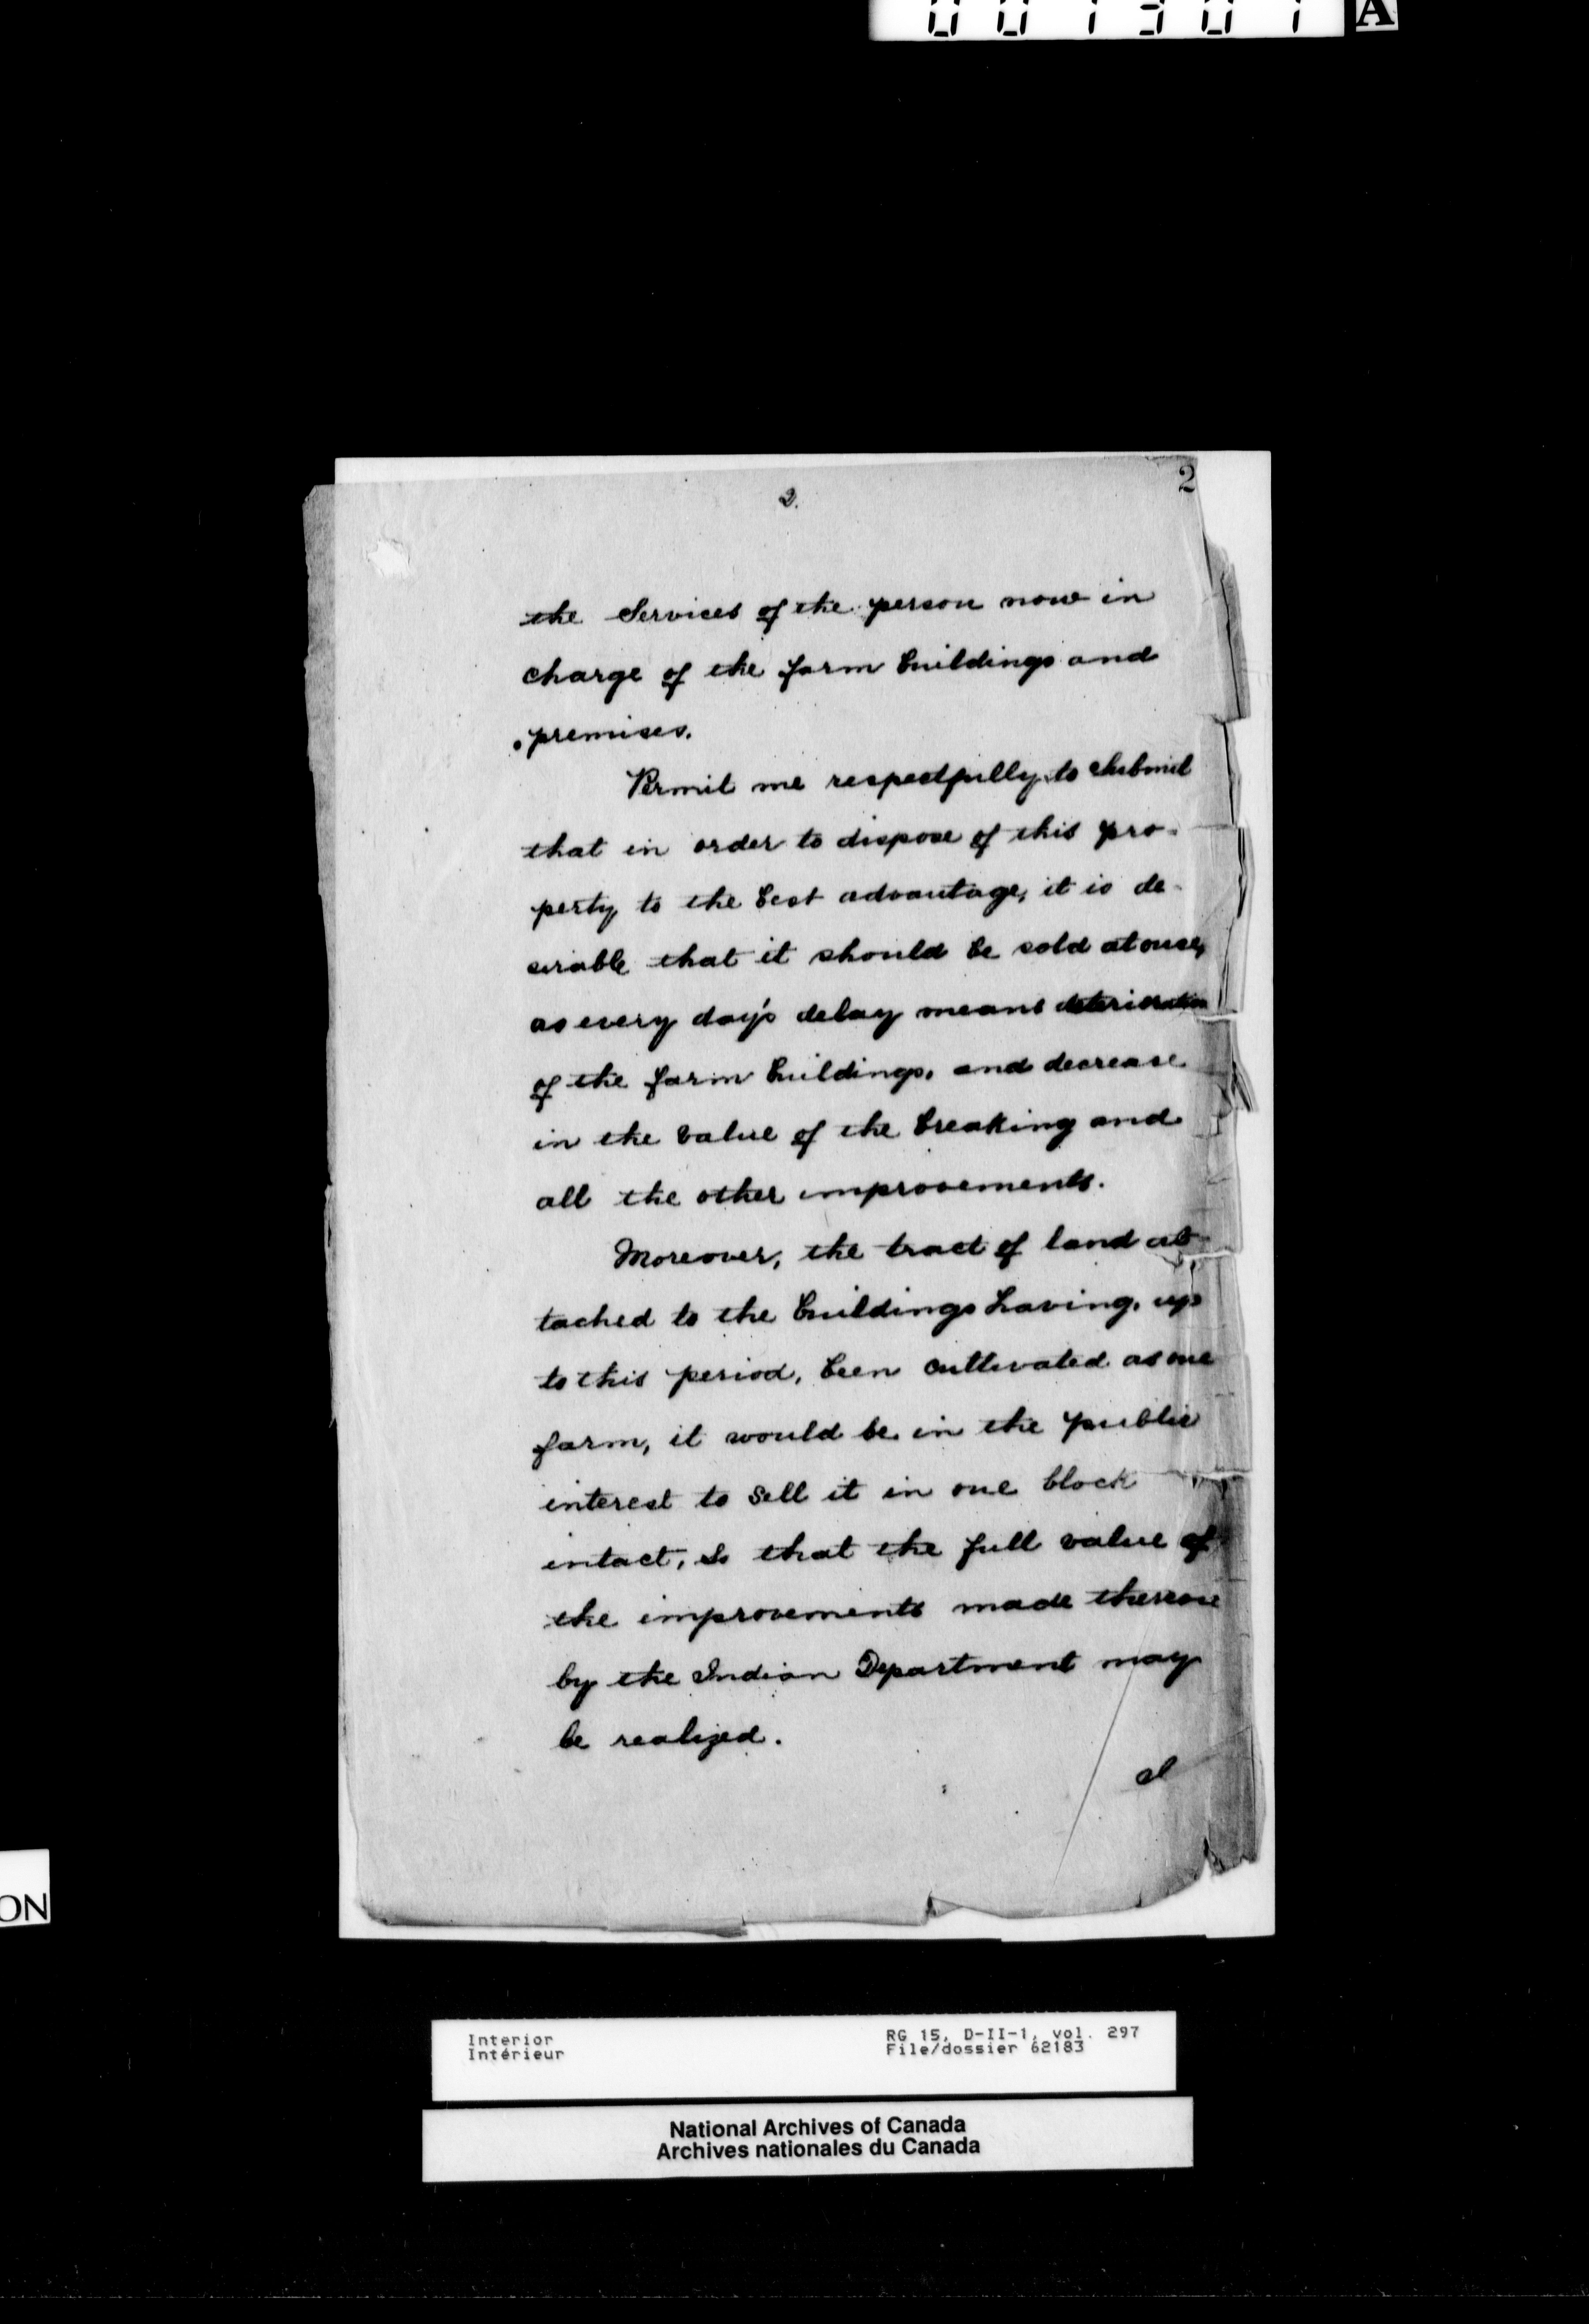 001301 A
2
2.
the Services of the person now in
charge of the farm buildings and
premises.
Permit me respectfully to submit
that in order to dispose of this pro-
perty to the best advantage, it is de-
sirable that it should be sold at once,
as every day's delay means deterioration
of the farm buildings, and decrease
in the value of the breaking and
all the other improvements.
Moreover, the tract of land at-
tached to the buildings having, up
to this period, been cultivated as one
farm, it would be in the public
interest to sell it in one block
intact, so that the full value of
the improvements made thereon
by the Indian Department may
be realized.
I
ON
Interior
Intérieur
RG 15, D-II-1, vol. 297
File/dossier 62183
National Archives of Canada
Archives nationales du Canada